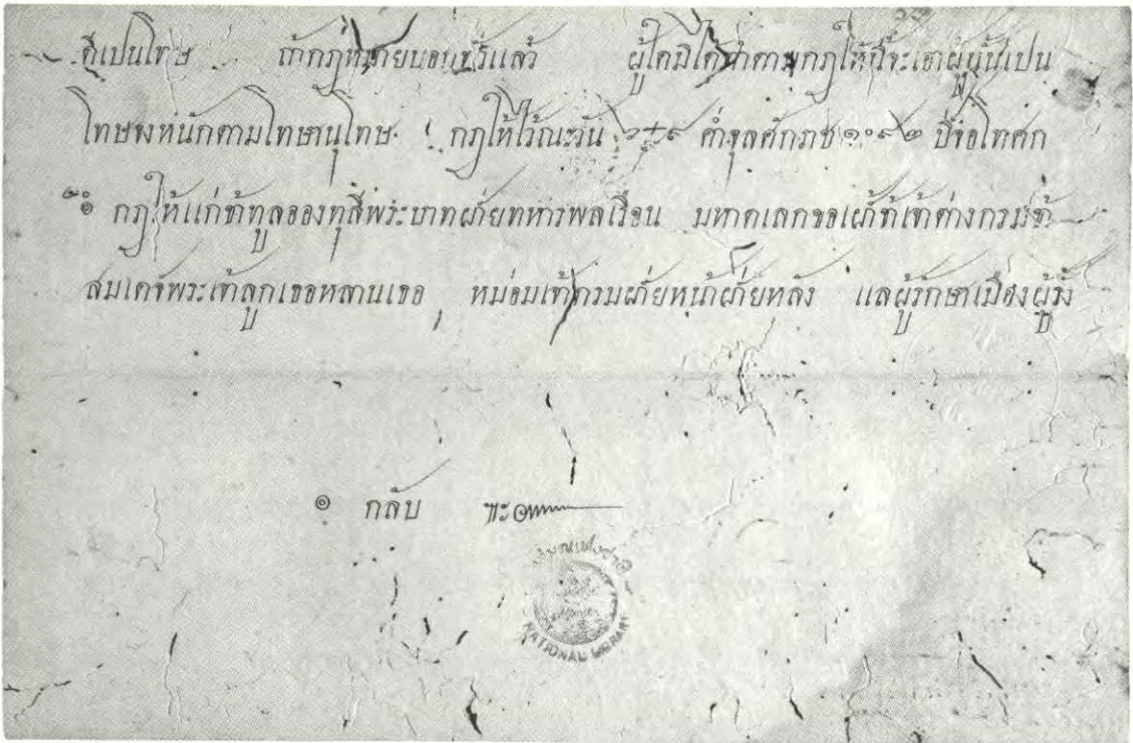 ก็เปนโทษ ถ้ากฎหมายบอก แล้ว ผู้ใดมิได้ทำตามกฎให้นี้จะเอาผู้นั้นเปน
โทษจงหนักตามโทษานุโทษ กฎให้ไว้ณะวัน ค่ำจุลศักราช ๑๐๙๒ ปีจอโทศก
กฎให้แก่ข้าทูลอองทุลีพระบาทฝ่ายทหารพลเรือน มหาดเลกขอเฝ้าข้าเจ้าต่างกรมข้า
สมเดจ์พระเจ้าลูกเธอหลานเธอ หม่อมเจ้ากรมฝ่ายหน้าฝ่ายหลัง แลผู้รักษาเมืองผู้รั้ง
๏ กลับ
NATIONAL LIBRARY